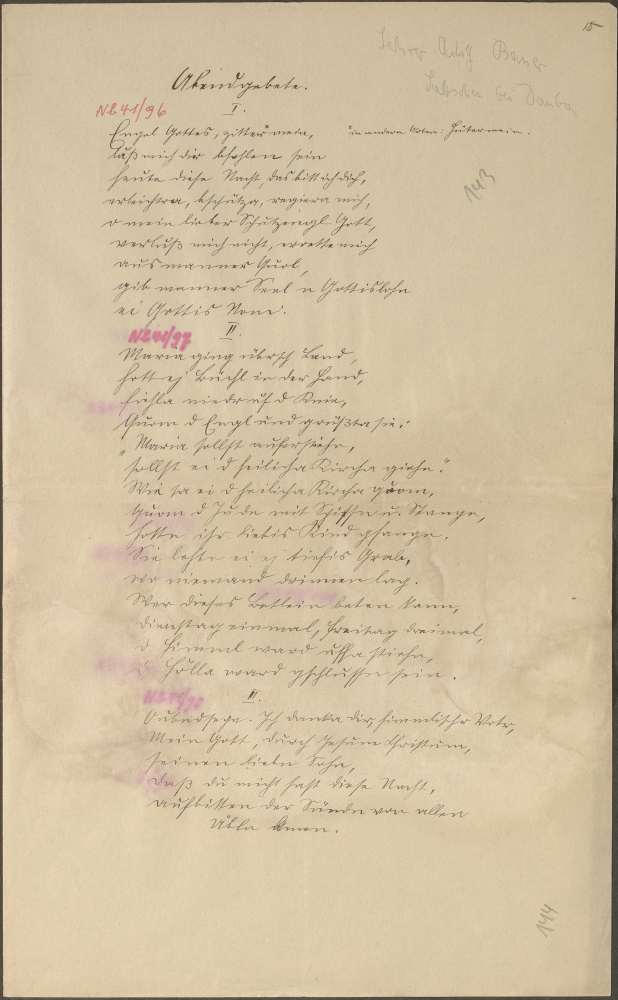 15
Lehrer Adolf Bauer
bei Dauba
Abendgebete.
Nb 41/96
I.
Engel Gottes, hitter mein, in andern Orten: Hüter mein.
laß mich dir befohlen sein
heute diese Nacht, das bitt ich dich,
erleichtre, bschütze, regiere mich,
o mein lieber Schutzengl Gott,
verlaß mich nicht, errette mich
aus manner Quol,
gib manner Seel a Gottislohn
ei Gottis Nome.
143
Nb 41/97
II.
Maria ging übersch Land,
hott ej Büchl in der Hand,
fiehla niedr uf d Knie,
Quom d Engl und grüßta sie:
"Maria sollst auferstehn,
sollst ei d heilicha Kircha giehn."
Wie sa ei d heilicha Kircha quom,
Quom d Jude mit Spießn u. Stange,
hotte ihr liebis Kind gfange.
Sie lehte ei ej tiefis Grab,
wo niemand drinnen lag.
Wer dieses Betlein beten kann,
Dienstag einmal, Freitag dreimal,
d Himmel ward uffa stiehn,
d Hölla ward gschlussn sein.
III.
Ich danke dir, himmlischr Votr,
Mein Gott, durch Jesum Christum,
seinen liebn Sohn,
Daß du mich hast diese Nacht,
der Sünde von allen
Übln Amen.
144